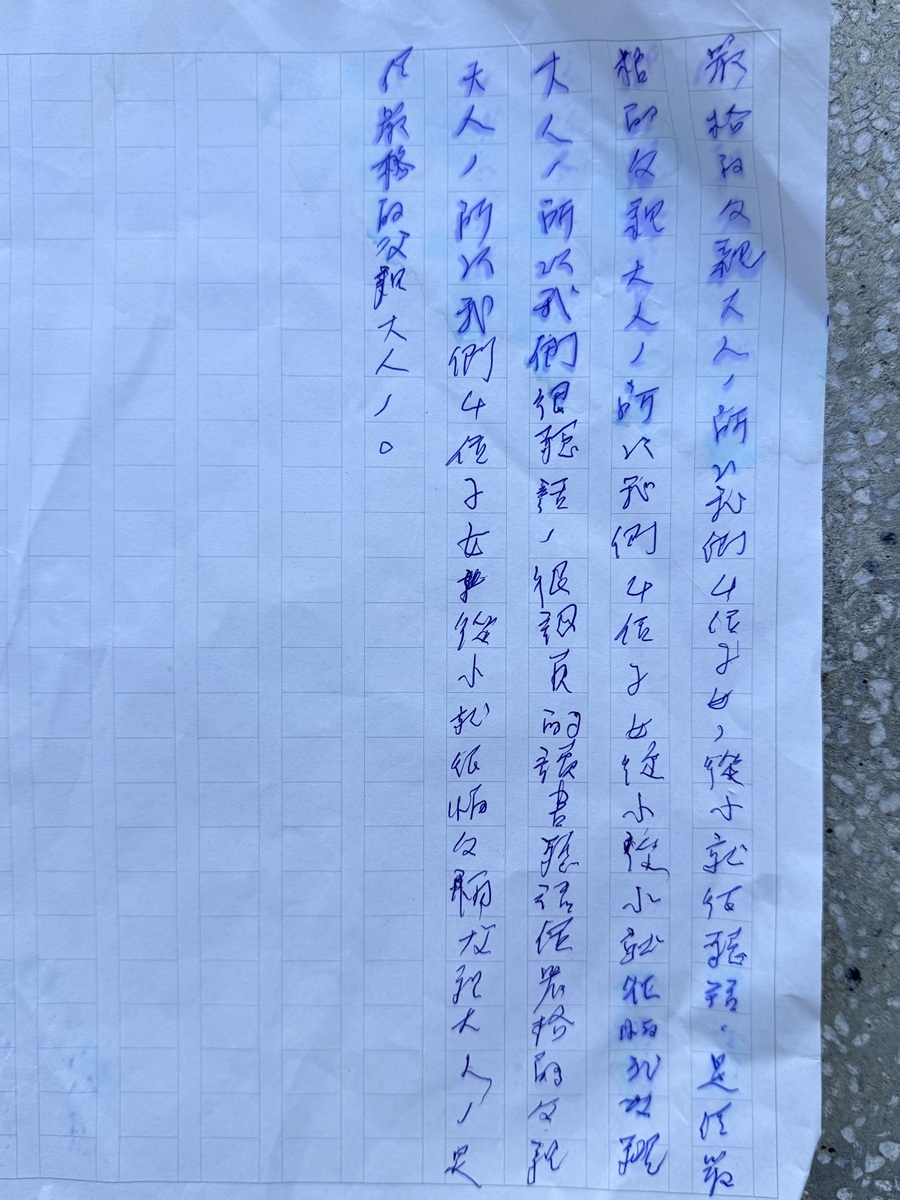 嚴格的父親大人,所以我們4位子女,從小就很聽話,是位嚴
格的父親大人,所以我們4位子女從小從小就很怕我父親
大人,所以我們很聽話,很認真的讀書聽話位嚴格的父親
大人,所以我們4位子女從小就很怕父親大人,是
位嚴格的父親大人,。